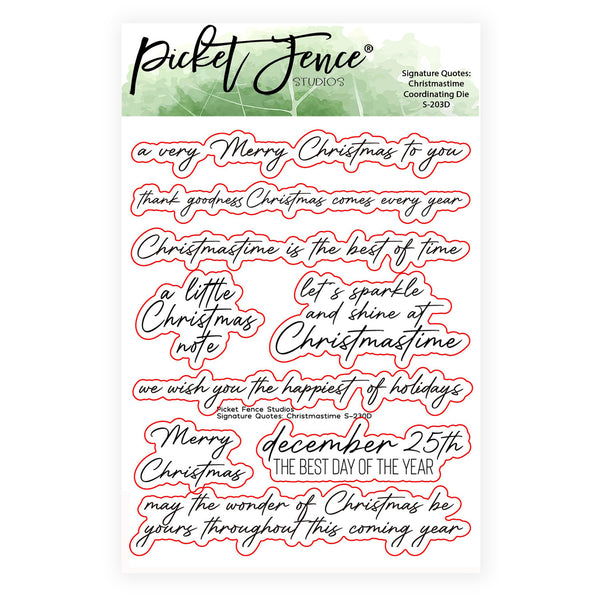 Picket Fence®
STUDIOS
Signature Quotes:
Christmastime
Coordinating Die
S-203D
a very Merry Christmas to you
thank goodness Christmas comes every year
Christmastime is the best of time
a little
Christmas
note
let's sparkle
and shine at
Christmastime
we wish you the happiest of holidays
Picket Fence Studios
Signature Quotes: Christmastime S-230D
Merry
Christmas
december 25th
THE BEST DAY OF THE YEAR
may the wonder of Christmas be
yours throughout this coming year